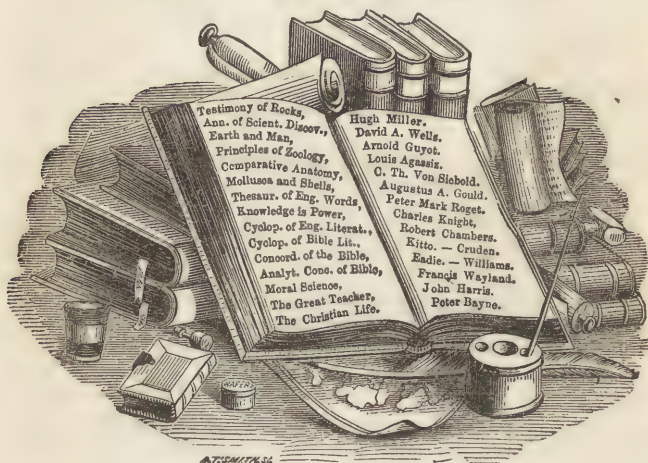 Testimony of Rocks,
Ann. of Scient. Discov.,
Earth and Man,
Principles of Zoology,
Comparative Anatomy,
Mollusca and Shells,
Thesaur. of Eng. Words,
Knowledge is Power,
Cyclop. of Eng. Literat.,
Cyclop. of Bible Lit.,
Concord. of the Bible,
Analyt. Conc. of Bible,
Moral Science,
The Great Teacher,
The Christian Life.
Hugh Miller.
David A. Wells.
Arnold Guyot.
Louis Agassiz.
C. Th. Von Siebold.
Augustus A. Gould.
Peter Mark Roget.
Charles Knight,
Robert Chambers.
Kitto. — Cruden.
Eadie. — Williams.
Francis Wayland.
John Harris.
Peter Bayne.
WAFERS